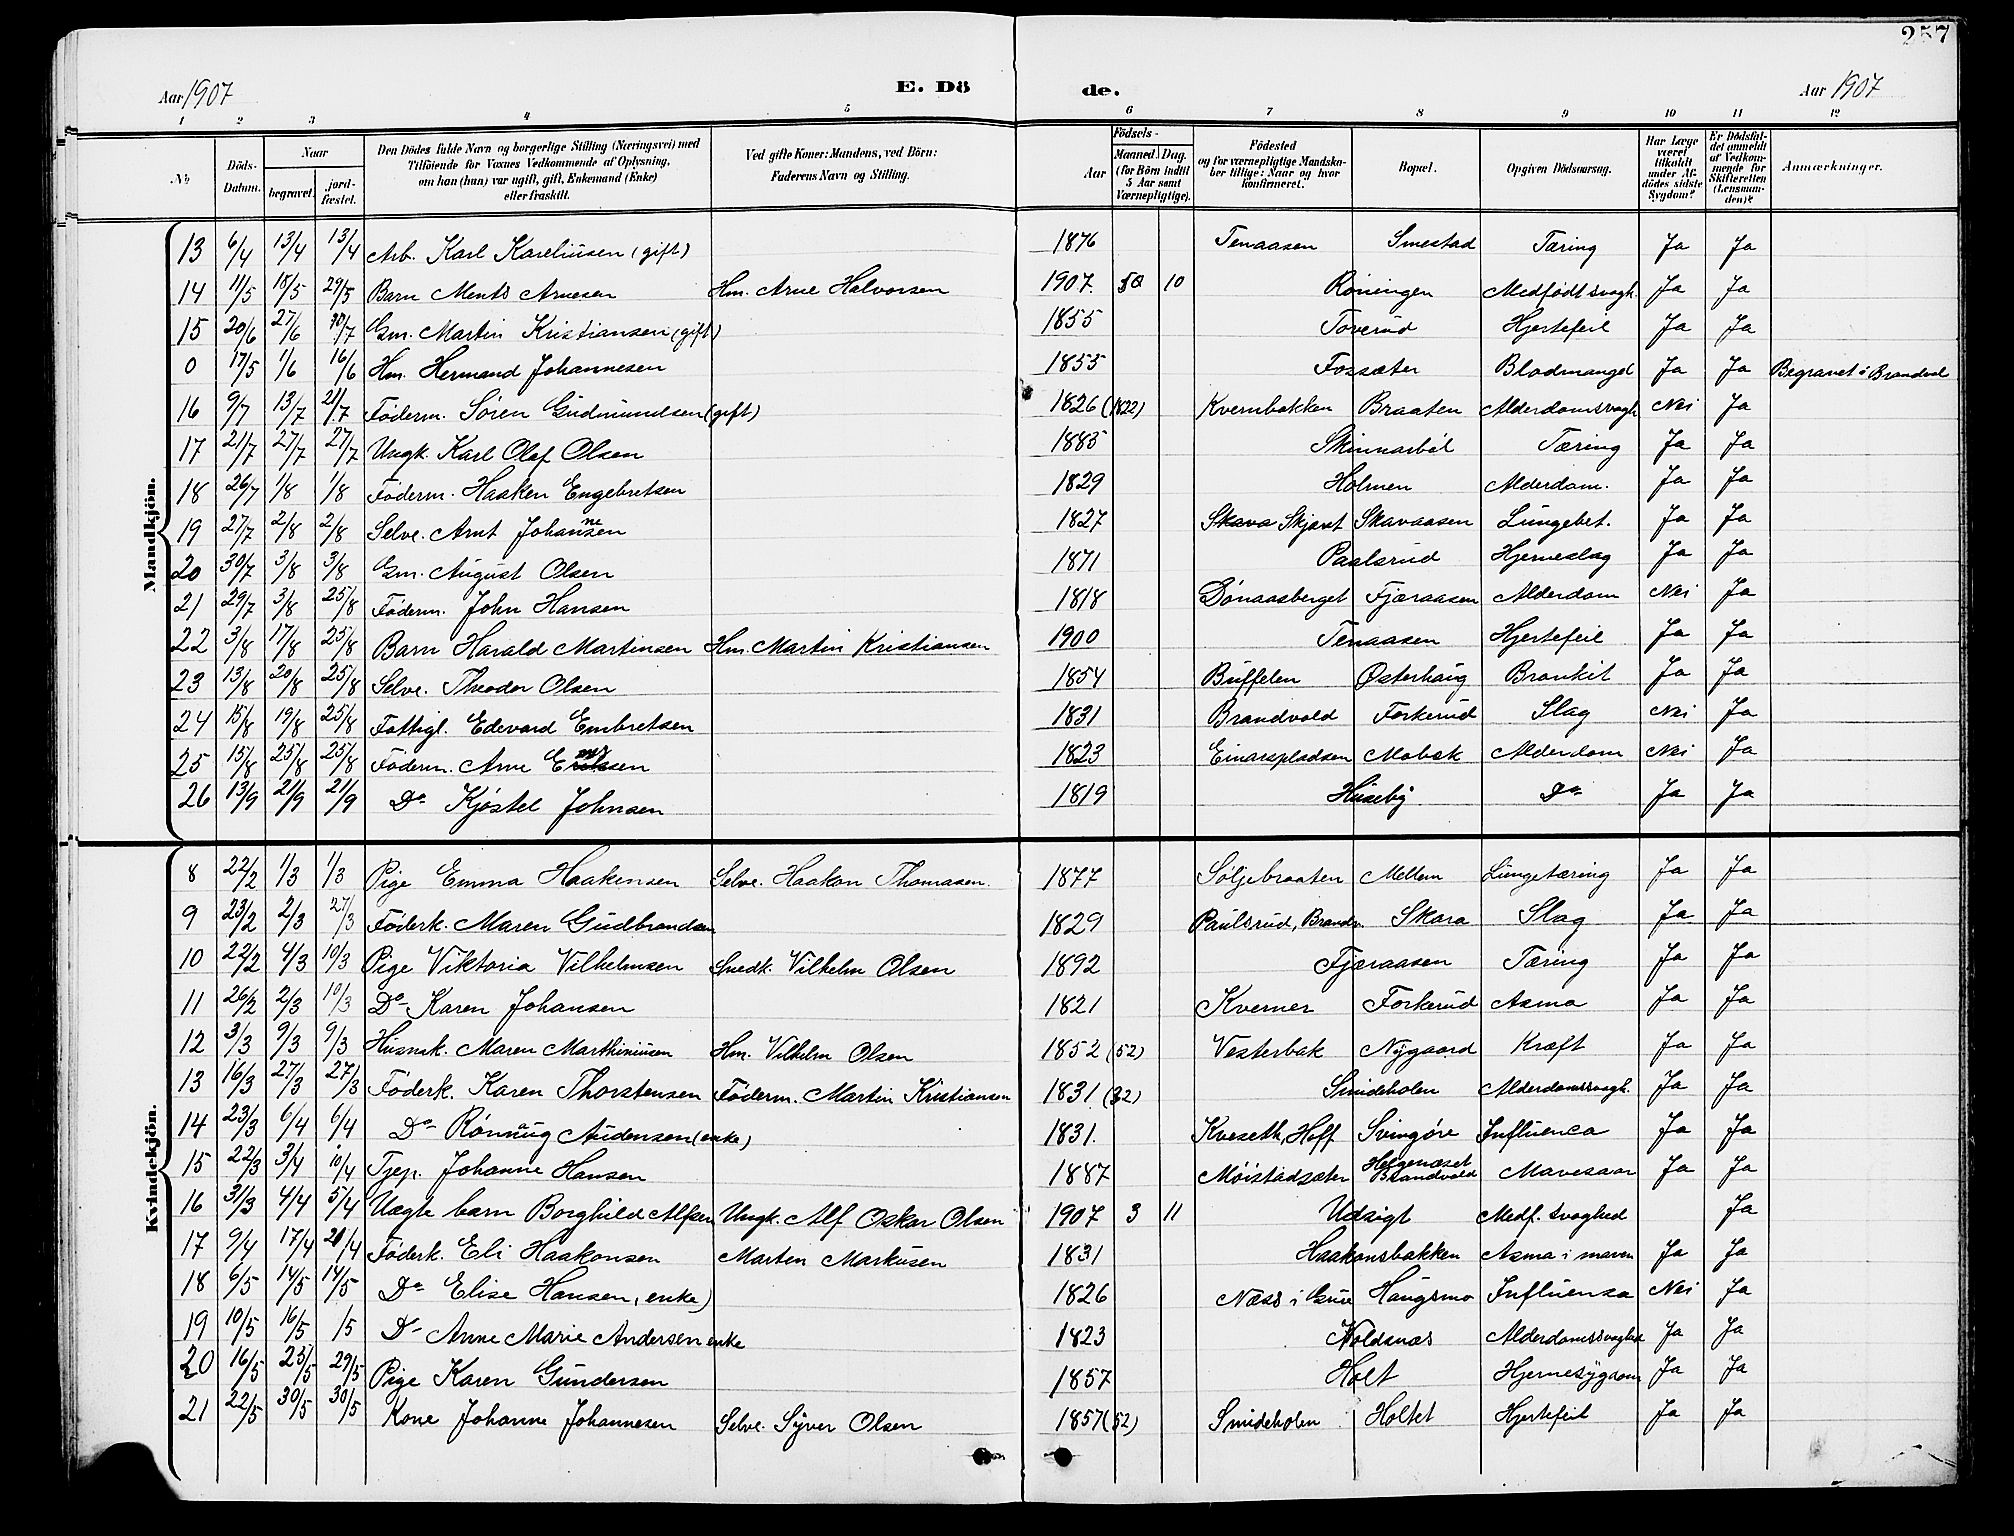 257
Aar 1907 E. Dö de. Aar 1907
1 2 3 4 5 6 7 8 9 10 11 12
No. Döds-Datum. Naar begravet. jord-fæstet. Den Dödes fulde Navn og borgerlige Stilling (Næringsvei) med Tilföiende for Voxnes Vedkommende af Oplysning, om han (hun) var ugift, gift, Enkemand (Enke) eller fraskilt. Ved gifte Koner: Mandens, ved Börn: Faderens Navn og Stilling. Födsels- Aar Maaned. Dag. (for Börn indtil 5 Aar samt Værnepligtige). Födested og for værnepligtige Mandskaber tillige: Naar og hvor konfirmeret. Bopæl. Opgiven Dödsaarsag. Har Læge været tilkaldt under Afdödes sidste Sygdom? Er Dödsfaldet anmeldt af Vedkommende for Skifteretten (Lensmanden)? Anmærkninger.
Mandkjön.
13 6/4 13/4 13/4 Arb. Karl Kareliusen (gift) 1876 Tenaasen Smestad Tæring Ja Ja
14 11/5 18/5 29/5 Barn Ments Arnesen Hm. Arne Halvorsen 1907. 10 Roningen Medfödt svagh. Ja Ja
15 20/6 27/6 30/7 Gm. Martin Kristiansen (gift) 1855 Toverud Hjertefeil Ja Ja
0 17/5 1/6 16/6 Hm. Hermand Johannesen 1855 Fossæter Blodmangel Ja Ja Begravet i Brandval
16 9/7 13/7 21/7 Föderm. Søren Gudmundsen (gift) 1826 (1822) Kvernbakken Braaten Alderdomssvagh. Nei Ja
17 21/7 27/7 27/7 Ungk. Karl Olaf Olsen 1885 Skinnarböl Tæring Ja Ja
18 26/7 1/8 1/8 Föderm. Haaken Engebretsen 1829 Holmen Alderdom. Ja Ja
19 27/7 2/8 2/8 Selve. Arnt Johannesen 1827 Skava Skjøret Skavaasen Lungebet. Ja Ja
20 30/7 3/8 3/8 Gm. August Olsen 1871 Paalsrud Hjerneslag Ja Ja
21 29/7 3/8 25/8 Föderm. John Hansen 1818 Dønaasberget Fjæraasen Alderdom Nei Ja
22 3/8 17/8 25/8 Barn Harald Martinsen Hm. Martin Kristiansen 1900 Tenaasen Hjertefeil Ja Ja
23 13/8 20/8 25/8 Selve. Theodor Olsen 1854 Buffelen Østerhaug Bronkit Ja Ja
24 15/8 19/8 25/8 Fattigl. Edevard Embretsen 1831 Brandvold Forkerud Slag Nei Ja
25 15/8 25/8 25/8 Föderm. Arne 1823 Einarspladsen Mobæk Alderdom Nei Ja
26 13/9 21/9 21/9 Do Kjøstel Johnsen 1819 Huseby Do Ja Ja
Kvindekjön.
8 22/2 1/3 1/3 Pige Emma Haakensen Selve. Haakon Thomasen. 1877 Soljebraaten Mellem Lungetæring Ja Ja
9 23/2 2/3 27/3 Föderk. Maren Gudbrandsen 1829 Paulsrud, Brandv. Skara Slag Ja Ja
10 22/2 4/3 10/3 Pige Viktoria Vilhelmsen Snedk. Vilhelm Olsen 1892 Fjæraasen Tæring Ja Ja
11 26/2 2/3 10/3 Do Karen Johansen 1821 Kverner Forkerud Asma Ja Ja
12 3/3 9/3 9/3 Husmk. Maren Marthiniusen Hm. Vilhelm Olsen 1852 (52) Vesterbæk Nygaard Kræft Ja Ja
13 16/3 27/3 27/3 Föderk. Karen Thorstensen Föderm. Martin Kristiansen 1831 (32) Smideholen Alderdomssvagh. Ja Ja
14 23/3 6/4 6/4 Do Rønnug Audensen (enke) 1831. Kveseth, Hoff Svingøre Influenca Ja Ja
15 22/3 3/4 10/4 Tjep. Johanne Hansen 1887 Moistadsæter Helgenæset Brandvold Mavesaar Ja Ja
16 31/3 4/4 5/4 Uægte barn Borghild Alfsen Ungk. Alf Oskar Olsen 1907 3 11 Udsigt Medf. svaghed Ja
17 9/4 17/4 20/4 Föderk. Eli Haakonsen Martin Markusen 1831 Haakonsbakken Asma i maven Ja Ja
18 6/5 14/5 14/5 Do Elise Hansen, enke) 1826 Næss i Grue Haugsmo Influensa Nei Ja
19 10/5 16/5 /5 Do Anne Marie Andersen enke 1823 Noldsnæs Alderdomssvaghed Ja Ja
20 16/5 25/5 29/5 Pige Karen Gundersen 1857 Holt Hjernesygdom Ja Ja
21 22/5 30/5 30/5 Kone Johanne Johannesen Selve. Syver Olsen 1857 (52) Smideholen Holtet Hjertefeil Ja Ja